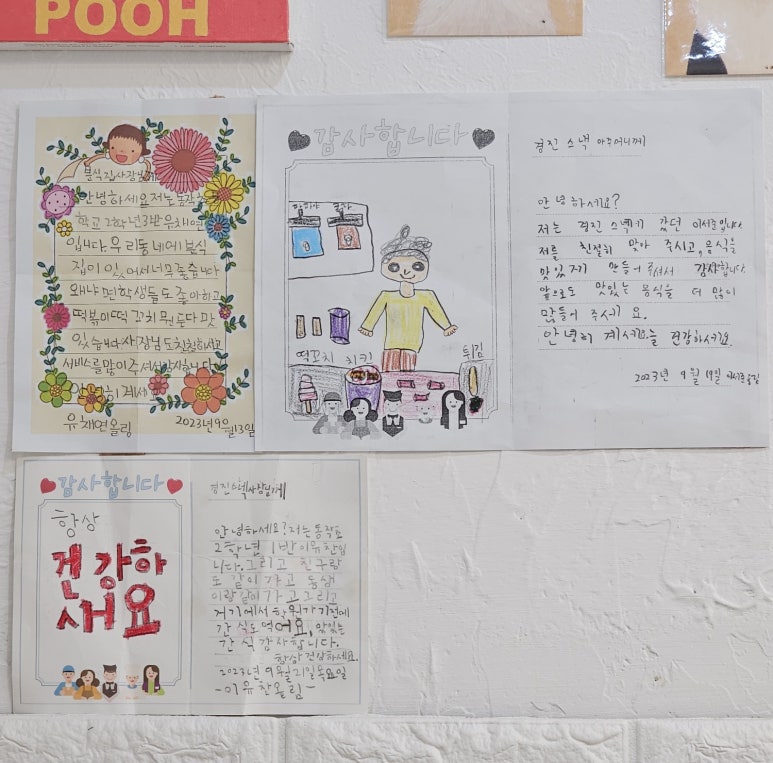 POOH
분식집 사장님께
안녕하세요 저는 동작초
학교 2학년 3반 유채연
입니다. 우리동네에 분식
집이 있어서 너무 좋습니다
왜냐면 학생들도 좋아하고
떡볶이 떡꼬치 뭐든 다 맛
있습니다 사장님도 친절하시고
서비스를 많이 주셔서 감사합니다
안녕히 계세
유채연올림
2023년 9월 13일
감사합니다
떡꼬치 치킨
튀김
경진 스낵 아주머니께
안녕하세요?
저는 경진 스낵에 갔던 이서준입니다.
저를 친절히 맞아 주시고, 음식을
맛있게 만들어 주셔서 감사합니다.
앞으로도 맛있는 음식을 더 많이
만들어 주세요.
안녕히 계세요늘 건강하세요.
2023년 9월 19일 이서준 올림
감사합니다
항상
건강하
세요
경진스낵사장님께
안녕하세요? 저는 동작초
2학년 1반 이유찬입
니다. 그리고 친구랑
도 같이 가고 동생
이랑 같이 가고 그리고
거기에서 학원가기전에
간식도 먹어요, 맛있는
간식 감사합니다.
항상 건강하세요.
2023년 9월 21일 목요일
-이유찬올림-